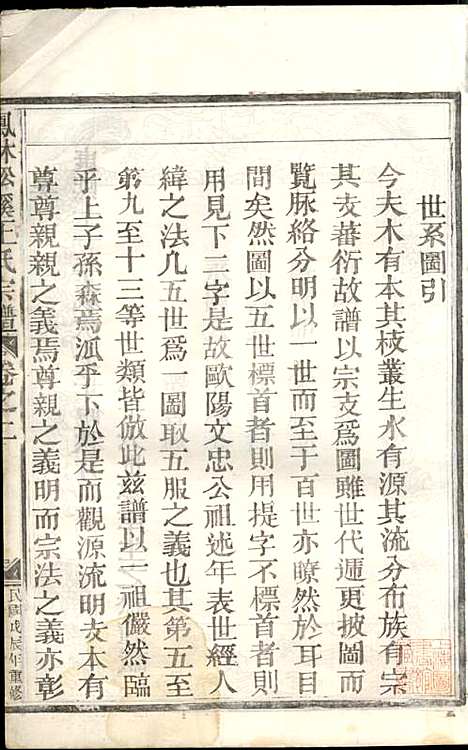 世系圖引
今夫木有本其枝叢生水有源其流分布族有宗
其支蕃衍故譜以宗支為圖雖世代遞更披圖而
覽脉絡分明以一世而至于百世亦瞭然於耳目
間矣然圖以五世標首者則用提字不標首者則
用見下二字是故歐陽文忠公祖述年表世經人
緯之法凡五世為一圖取五服之義也其第五至
第九至十三等世類皆倣此兹譜以一祖儼然臨
乎上子孫森焉泒乎下於是而觀源流明支本有
尊尊親親之義焉尊親之義明而宗法之義亦彰
鳳林松溪王氏宗譜 卷之二
民國戊辰年重修